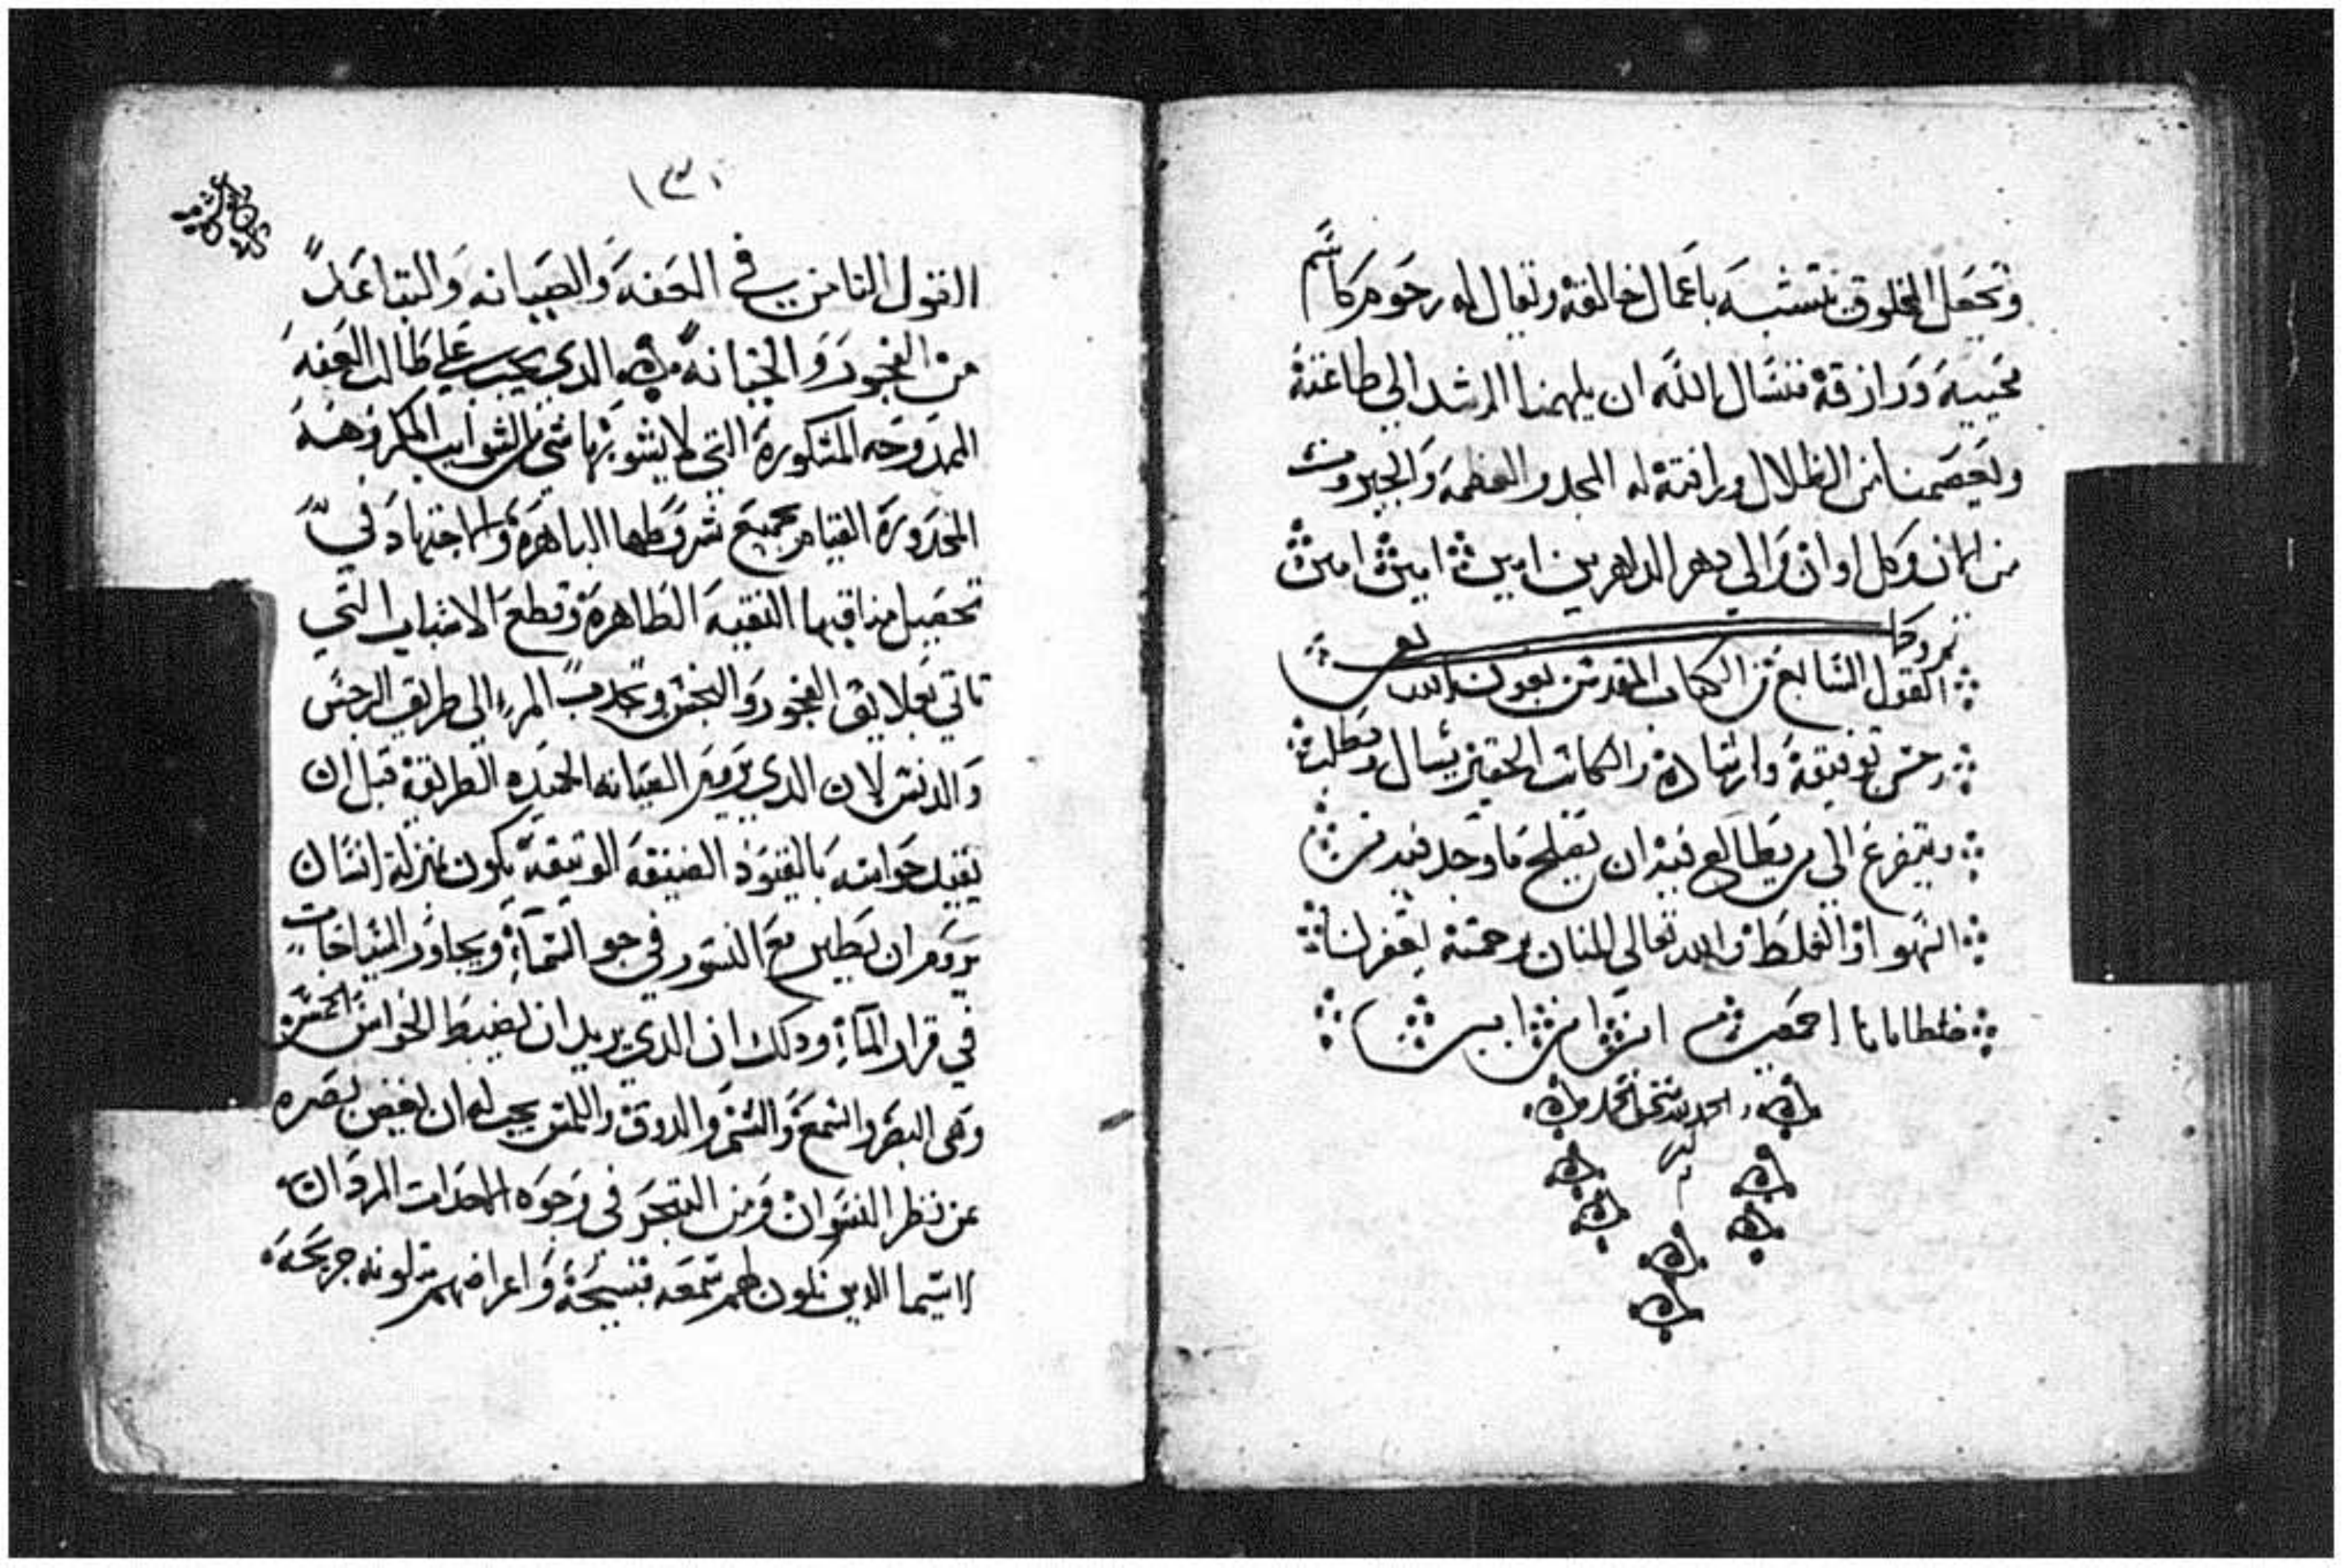 وتجعل المخلوق يتشبه باعمال خالقه ويقال له رحوم كاسم
محييه ورازقه نسال الله ان يلهمنا الرشد الى طاعته
ويعصمنا من الظلال برافته له المجد والعظمه والجبروت
من الان وكل اوان والى دهر الداهرين امين امين امين
القول السابع من الكتاب المقدس بعون الله
وحسن توفيقه وارشاده والكاتب الحقير يسال ويطلب
ويتضرع الى من يطالع فيه ان يصلح ما وجد فيه من
السهو او الغلط والله تعالى المنان برحمته يغفر لنا
خطايانا اجمعين امين امين امين
القول الثامن في العفه والصيانه والتباعد
من الفجور والخيانه الدي يجب على طالب العفه
الممدوحه المشكوره التي لا يشوبها شي من الشوايب المكروهه
المحدوره القيام بجميع شروطها الباهره والاجتهاد في
تحصيل مناقبها النقيه الطاهره وقطع الاسباب التي
تاتي بعلايق الفجور والنجس وتجدب المرء الى طريق الرجس
والدنس لان الدي يروم الصيانه الحميده الطريقه قبل ان
يقيد حواسه بالقيود الضيقه الوتيقه يكون بمنزله انسان
يروم ان يطير مع النسور في جو السماء ويجاور السباحات
في قرار الماء ودلك ان الدي يريد ان يضبط الحواس الخمسه
وهى البصر والسمع والشم والدوق واللمس يجب له ان يغض بصره
عن نظر النسوان ومن التبحر في وجوه الاحدات المردان
لاسيما الدين تكون لهم سمعه قبيحه واعراضهم جريحه